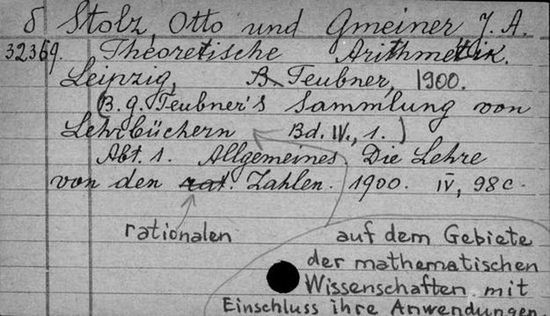 δ Stolz, Otto und Gmeiner J. A.
32369. Theoretische Arithmetik.
Leipzig, B. Teubner, 1900.
(B. g. Teubner's Sammlung von
Lehrbüchern Bd. IV., 1.)
Abt. 1. Allgemeines Die Lehre
von den rat. Zahlen. 1900. IV, 98 c.
rationalen
auf dem Gebiete
der mathematischen
Wissenschaften mit
Einschluss ihre Anwendungen.